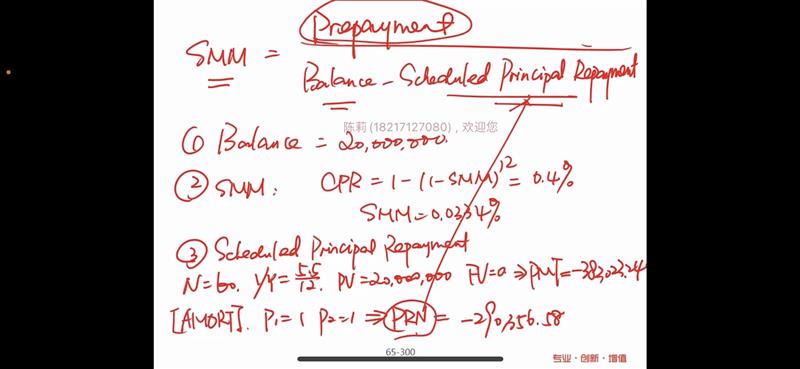 SMM = Prepayment / Balance - Scheduled Principal Repayment
陈莉(18217127080)，欢迎您
① Balance = 20,000,000.
② SMM: CPR = 1-(1-SMM)^12 = 0.4%
SMM = 0.0334%
③ Scheduled Principal Repayment
N=60. I/Y = 5.5/12. PV=20,000,000 FV=0 ⇒ PMT=-382,023.24
[AMORT]. P1=1 P2=1 ⇒ PRN = -290,356.58
65-300
专业·创新·增值